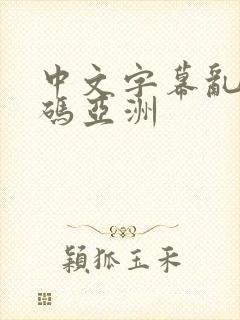 中文字幕亂
碼亞洲
穎狐玉禾